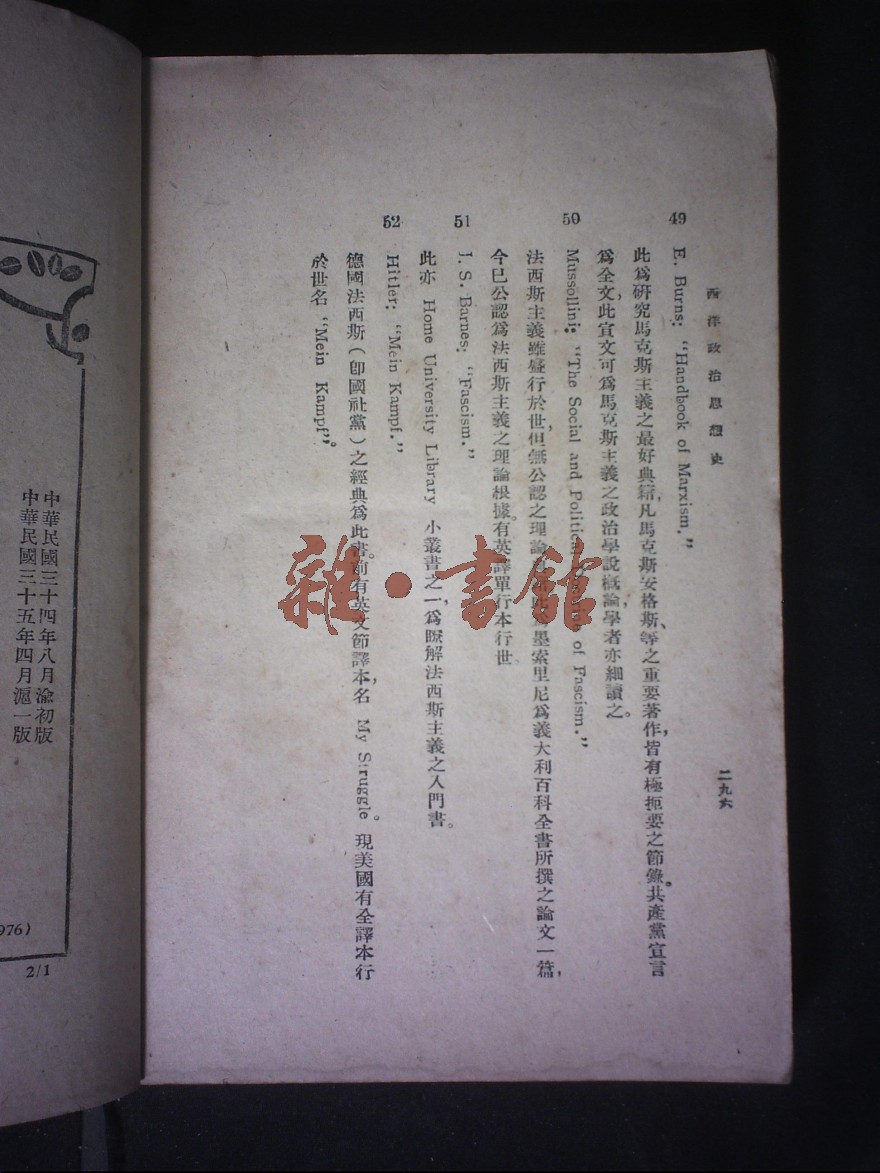 西洋政治思想史
二九六
49 E. Burns: “Handbook of Marxism.”
此爲研究馬克斯主義之最好典籍,凡馬克斯、安格斯等之重要著作,皆有極扼要之節錄。共產黨宣言
爲全文,此宣文可爲馬克斯主義之政治學說概論,學者亦細讀之。
50 Mussollini: “The Social and Political of Fascism.”
法西斯主義雖盛行於世,但無公認之理論 爲墨索里尼爲義大利百科全書所撰之論文一篇,
今已公認爲法西斯主義之理論根據。有英譯單行本行世
51 J. S. Barnes: “Fascism.”
此亦 Home University Library 小叢書之一,爲瞭解法西斯主義之入門書。
52 Hitler: “Mein Kampf.”
德國法西斯(即國社黨)之經典爲此書。前有英文節譯本名 My Struggle。現美國有全譯本行
於世名“Mein Kampf”。
雜·書館
中華民國三十四年八月渝初版
中華民國三十五年四月滬一版
976)
2/1